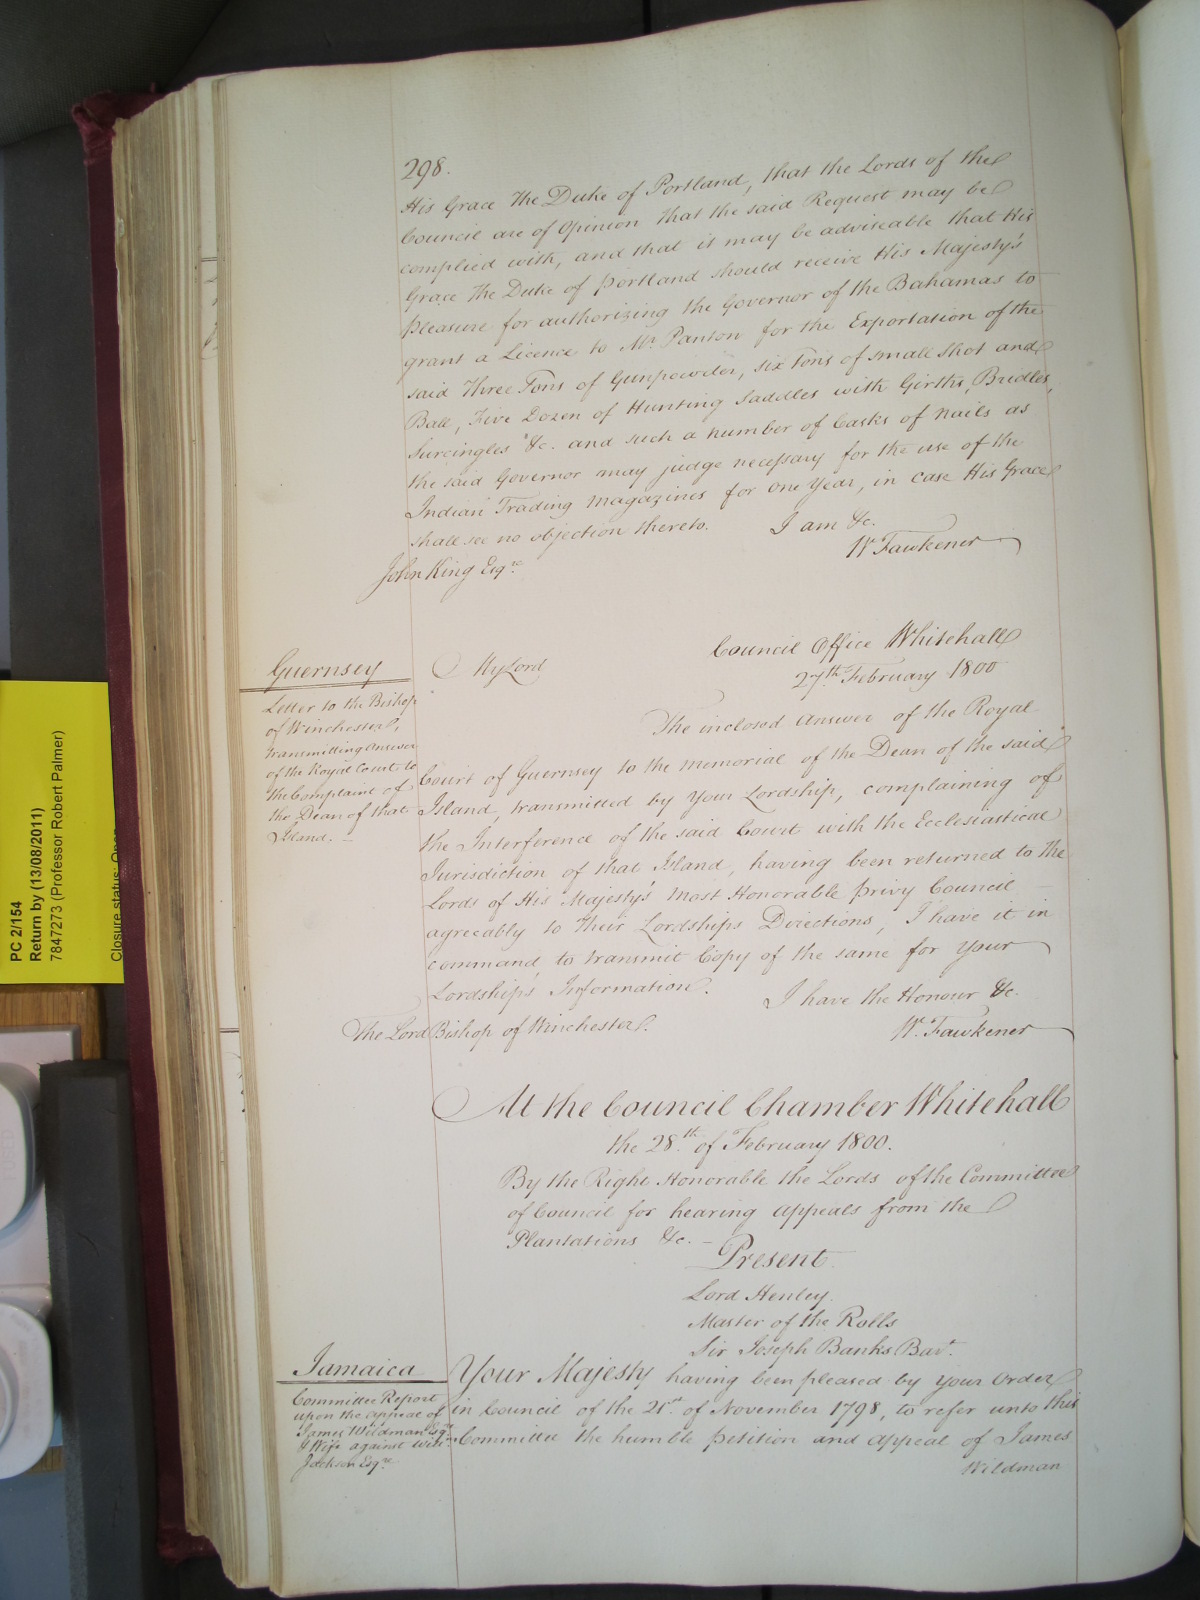 298.
His Grace The Duke of Portland, that the Lords of the
Council are of Opinion that the said Request may be
complied with, and that it may be adviseable that His
Grace The Duke of Portland should receive His Majesty's
pleasure for authorizing the Governor of the Bahamas to
grant a Licence to Mr. Panton for the Exportation of the
said Three Tons of Gunpowder, six Tons of small shot and
Ball, Five Dozen of Hunting Saddles with Girths, Bridles,
Surcingles &c. and such a number of Casks of nails as
the said Governor may judge necessary for the use of the
Indian Trading Magazines for one Year, in case His Grace
shall see no objection thereto. I am &c.
W Fawkener
John King Esqre
Council Office Whitehall
27th February 1800
Guernsey
Letter to the Bishop
of Winchester,
transmitting Answer
of the Royal Court to
the Complaint of
the Dean of that
Island.
My Lord
The inclosed Answer of the Royal
Court of Guernsey to the Memorial of the Dean of the said
Island, transmitted by Your Lordship, complaining of
the Interference of the said Court with the Ecclesiastical
Jurisdiction of that Island, having been returned to the
Lords of His Majesty's most Honorable privy Council
agreeably to their Lordships Directions, I have it in
command to transmit Copy of the same for Your
Lordship's Information. I have the Honour &c.
The Lord Bishop of Winchester. W. Fawkener
At the Council Chamber Whitehall
the 28th of February 1800.
By the Right Honorable the Lords of the Committee
of Council for hearing Appeals from the
Plantations &c.
Present
Lord Henley.
Master of the Rolls
Sir Joseph Banks Bart.
Jamaica
Committee Report
upon the Appeal of
James Wildman Esqr
& Wife against Willm
Jackson Esqre
Your Majesty having been pleased by Your Order
in Council of the 21st of November 1798, to refer unto this
Committee the humble petition and appeal of James
Wildman
PC 2/154
Return by (13/08/2011)
7847273 (Professor Robert Palmer)
Closure status: Open